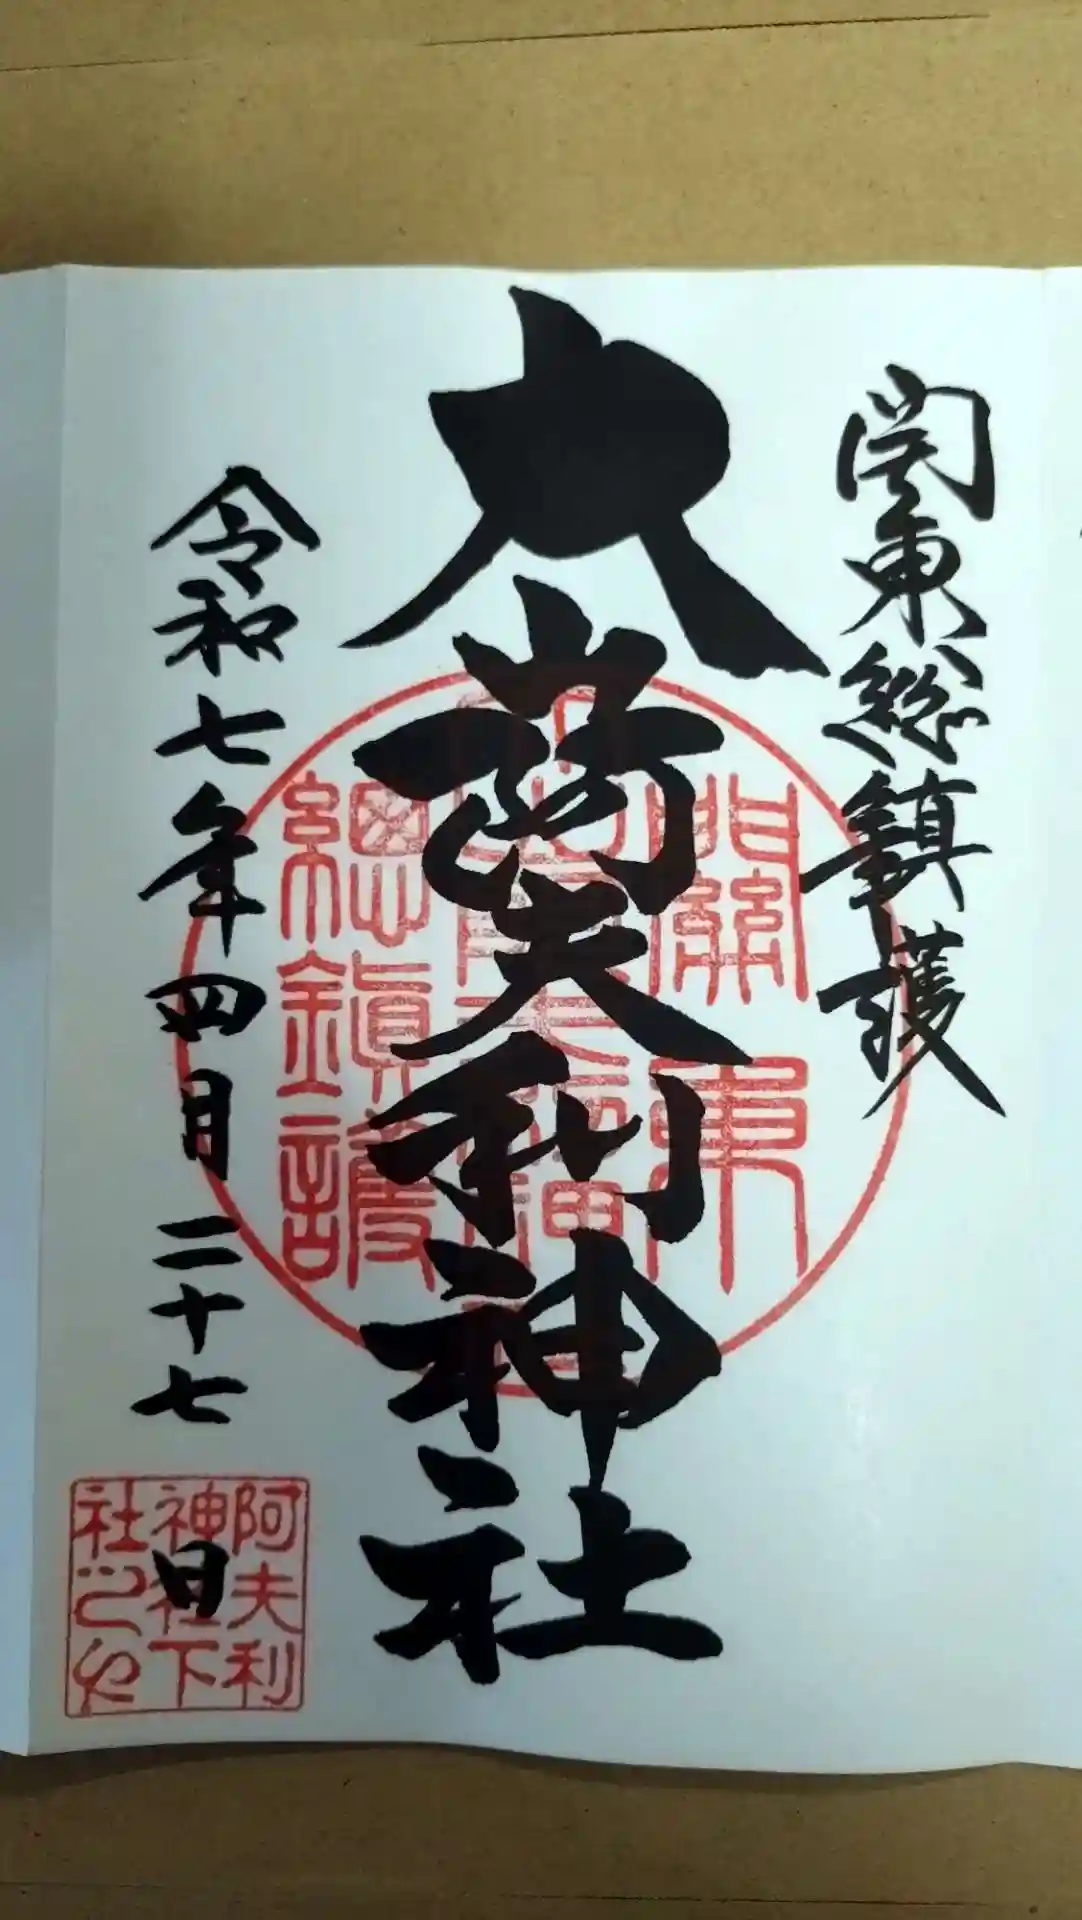 関東総鎮護
大山阿夫利神社
令和七年四月二十七日
關東
總鎮護
阿夫利
神社下
社之印